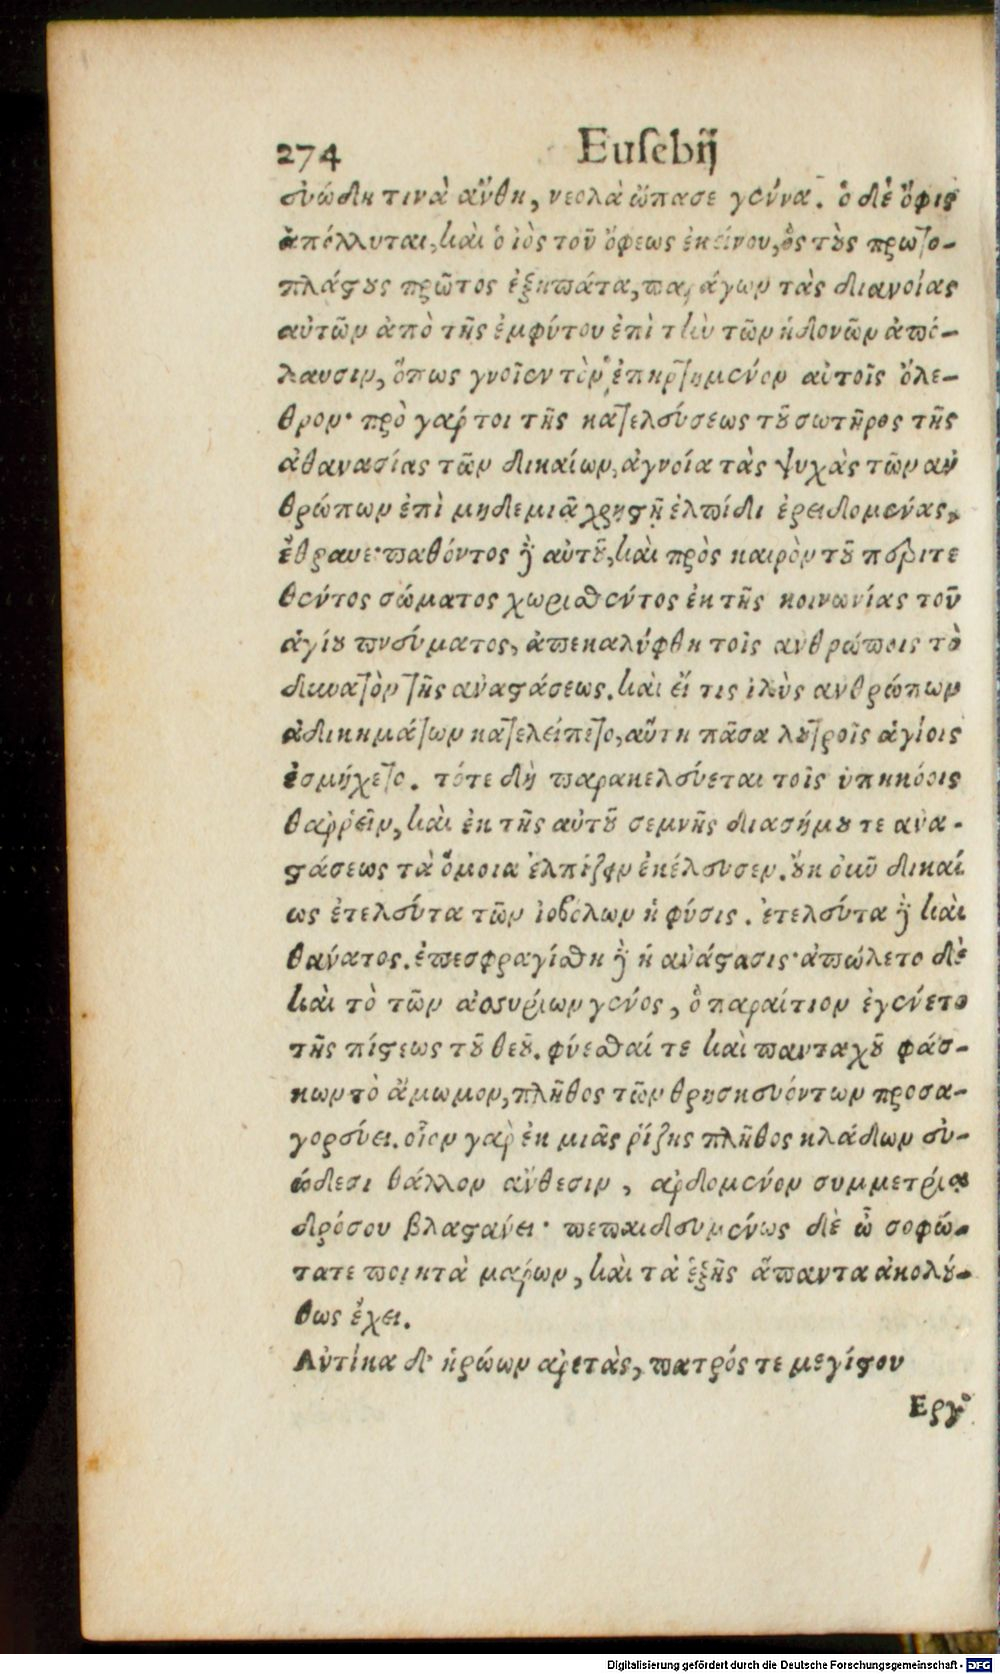 274 Euſebij
ευώδη τινὰ ἄνθη, νεολαὶ ὤπασε γέννα. ὁ δὲ ὄφις
ἀπόλλυται, καὶ ὁ ἰὸς τοῦ ὄφεως ἐκείνου, ὃς τοὺς πρωτο-
πλάστους πρῶτος ἐξηπάτα, παράγων τὰς διανοίας
αὐτῶν ἀπὸ τῆς ἐμφύτου ἐπὶ τὴν τῶν ἡδονῶν ἀπό-
λαυσιν, ὅπως γνοῖεν τὸν ἐπηρτημένον αὐτοῖς ὄλε-
θρον· πρὸ γάρ τοι τῆς κατελεύσεως τοῦ σωτῆρος τῆς
ἀθανασίας τῶν δικαίων, ἀγνοία τὰς ψυχὰς τῶν ἀν
θρώπων ἐπὶ μηδεμιᾷ χρηστῇ ἐλπίδι ἐρειδομένας,
ἔθραυε· παθόντος δὲ αὐτοῦ, καὶ πρὸς καιρὸν τοῦ περιτε
θέντος σώματος χωρισθέντος ἐκ τῆς κοινωνίας τοῦ
ἁγίου πνεύματος, ἀπεκαλύφθη τοῖς ἀνθρώποις τὸ
δυνατὸν τῆς ἀναστάσεως. καὶ εἴ τις ἰλὺς ἀνθρώπων
ἀδικημάτων κατελείπετο, αὕτη πᾶσα λουτροῖς ἁγίοις
ἐσμήχετο. τότε δὴ παρακελεύεται τοῖς ὑπηκόοις
θαῤῥεῖν, καὶ ἐκ τῆς αὐτοῦ σεμνῆς διασήμου τε ἀνα-
στάσεως τὰ ὅμοια ἐλπίζειν ἐκέλευσεν. οὐκ οὖν δικαί
ως ἐτελεύτα τῶν ἰοβόλων ἡ φύσις. ἐτελεύτα δὲ καὶ
θάνατος. ἐπεσφραγίσθη δὲ ἡ ἀνάστασις· ἀπώλετο δὲ
καὶ τὸ τῶν ἀσσυρίων γένος, ὃ παραίτιον ἐγένετο
τῆς πίστεως τοῦ θεοῦ. φύεσθαί τε καὶ πανταχοῦ φάσ-
κων τὸ ἄμωμον, πλῆθος τῶν θρησκευόντων προσα-
γορεύει. οἷον γὰρ ἐκ μιᾶς ῥίζης πλῆθος κλάδων εὐ-
ώδεσι θάλλον ἄνθεσιν, ἀρδομένον συμμετρίᾳ
δρόσου βλαστάνει· πεπαιδευμένως δὲ ὦ σοφώ-
τατε ποιητὰ μάρων, καὶ τὰ ἑξῆς ἅπαντα ἀκολού-
θως ἔχει.
Αὐτίκα δ' ἡρώων ἀρετὰς, πατρός τε μεγίστου
Εργ
Digitalisierung gefördert durch die Deutsche Forschungsgemeinschaft - DFG